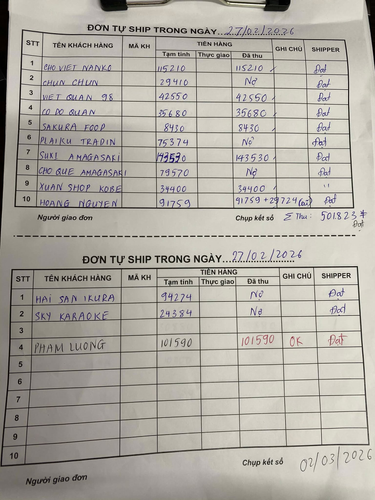 ĐƠN TỰ SHIP TRONG NGÀY 27/02/2026
STT TÊN KHÁCH HÀNG MÃ KH TIỀN HÀNG GHI CHÚ SHIPPER
Tạm tính Thực giao Đã thu
1 CHO VIET NANKO 115210 115210 Đat
2 CHUN CHUN 29410 Nợ Đat
3 VIET QUAN 98 42550 42550 Đat
4 CO DO QUAN 35680 35680 Đat
5 SAKURA FOOD 8430 8430 Đat
6 PLAIKU TRADIN 75374 Nơ Đat
7 SUKI AMAGASAKI 143530 Đat
8 CHO QUE AMAGASAKI 79570 Nơ Đat
9 XUAN SHOP KOBE 34400 34400 "
10 HOANG NGUYEN 91759 91759 + 29724 Đat
Người giao đơn Chụp kết sổ Σ Thu: 501823 ¥
Đat
ĐƠN TỰ SHIP TRONG NGÀY 27/02/2026
STT TÊN KHÁCH HÀNG MÃ KH TIỀN HÀNG GHI CHÚ SHIPPER
Tạm tính Thực giao Đã thu
1 HAI SAN IKURA 94274 Nơ Đat
2 SKY KARAOKE 24384 Nơ Đat
3
4 PHAM LUONG 101590 101590 OK Đat
5
6
7
8
9
10
Người giao đơn Chụp kết sổ 02/03/2026